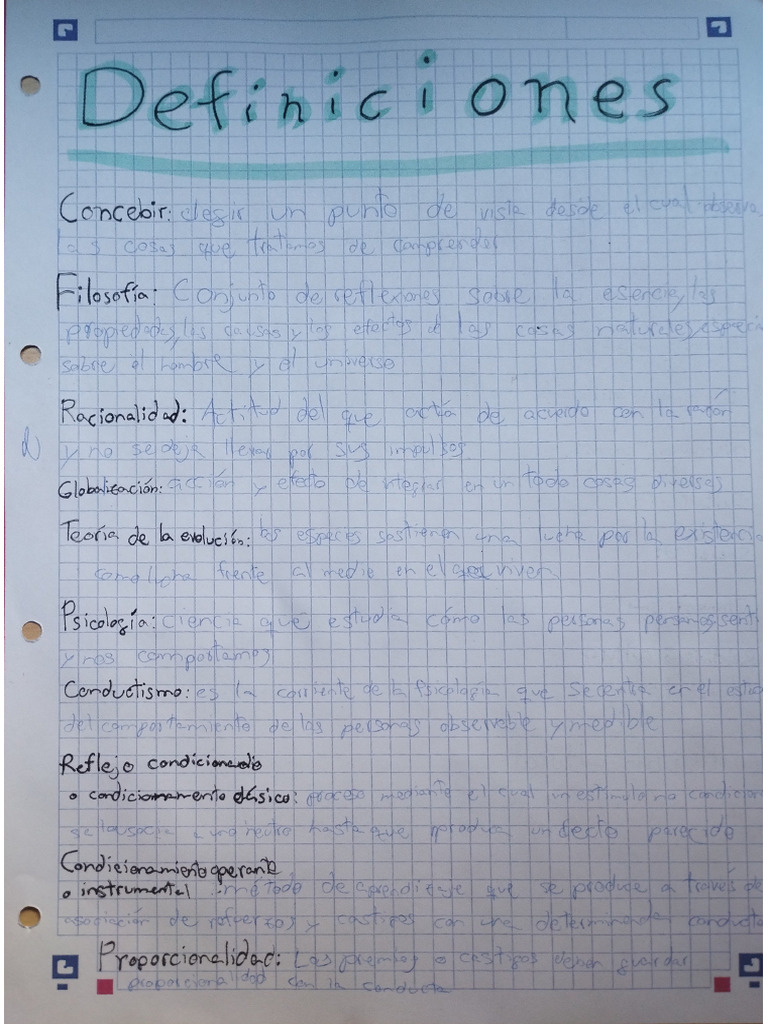 Definiciones
Concebir: elegir un punto de vista desde el cual observa
las cosas que tratamos de comprender
Filosofía: Conjunto de reflexiones sobre la esencia, las
propiedades, las causas y los efectos de las cosas naturales, especia
sobre el hombre y el universo
Racionalidad: Actitud del que actúa de acuerdo con la razón
y no se deja llevar por sus impulsos.
Globalización: acción y efecto de integrar en un todo cosas diversas
Teoría de la evolución: las especies sostienen una lucha por la existenci
como lucha frente al medio en el que viven
Psicología: ciencia que estudia cómo las personas pensamos, sent
y nos comportamos
Conductismo: es la corriente de la psicología que se centra en el estu
del comportamiento de las personas observable y medible
Reflejo condicionado
o condicionamiento clásico: proceso mediante el cual un estímulo no condicion
se a uno neutro hasta que produce un efecto parecido
Condicionamiento operante
o instrumental: método de aprendizaje que se produce a través de
asociación de refuerzos y castigos con una determinada conducta
Proporcionalidad: Los premios o castigos deben guardar
proporcionalidad con la conducta